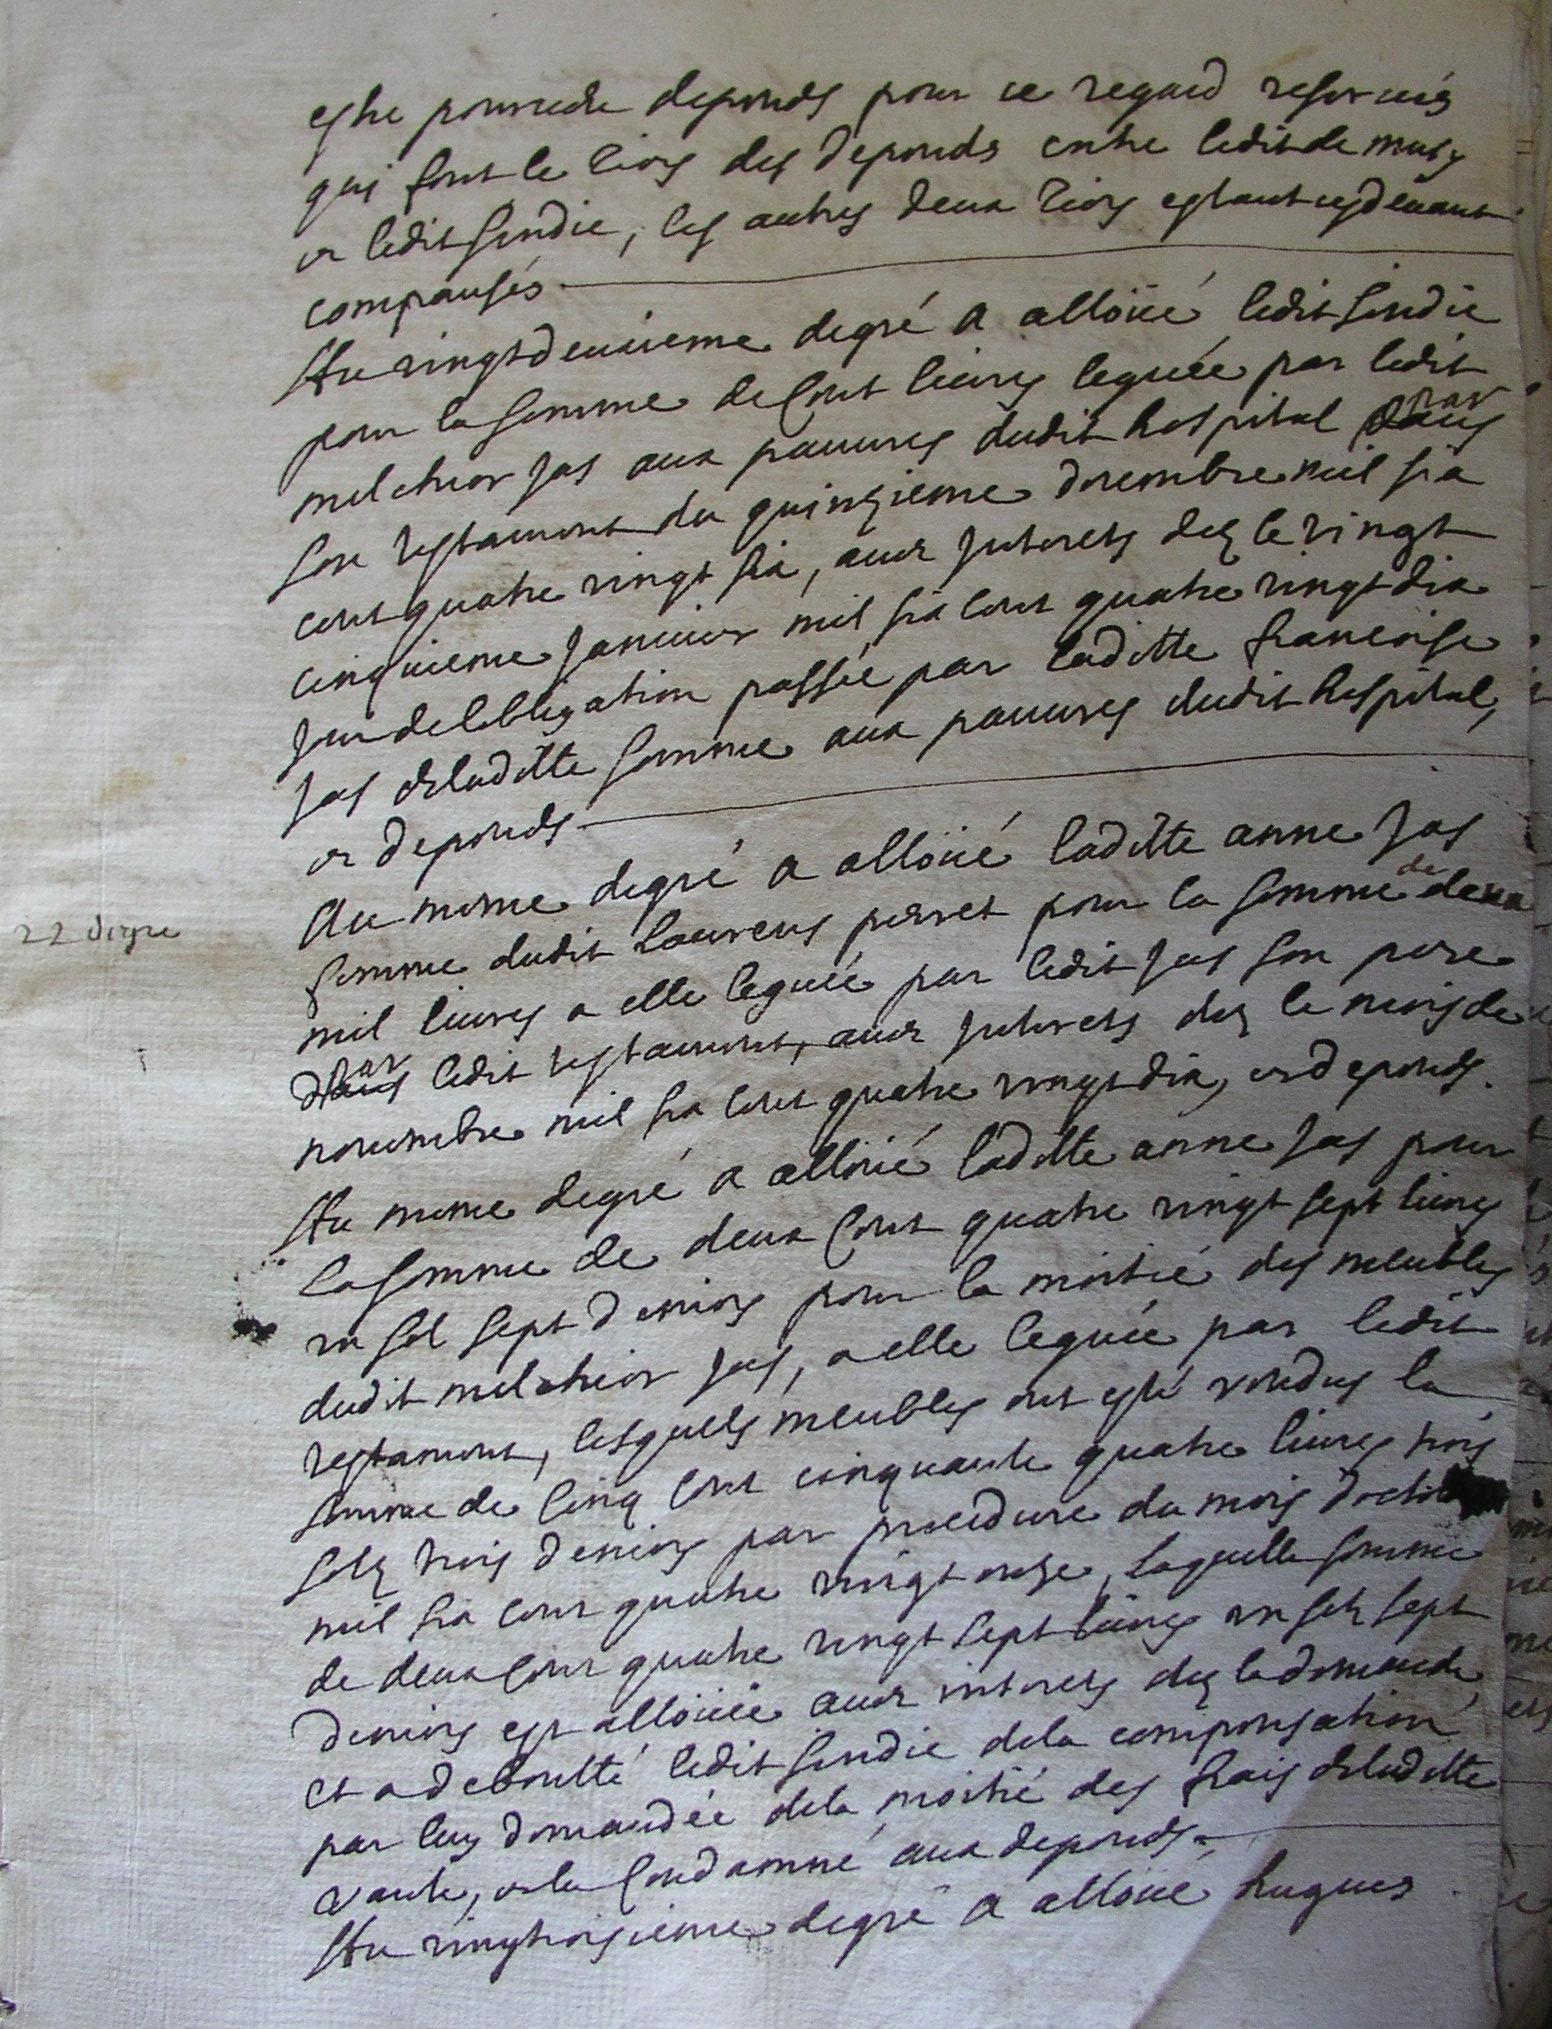 estre pourveüe depends pour ce regard reservés
qui sont le tiers des depends entre ledit de musy
et ledit sindic, les autres deux tiers estant cydevant
compansés
Au vingtdeuxieme degré a alloüé ledit sindic
pour la somme de Cent livres leguée par ledit
melchior Jas aux pauvres dudit hospital dans par
son testament du quinzieme decembre mil six
cent quatre vingt six, avec Interets dez le vingt
cinquieme Janvier mil six cent quatre vingt dix
Jour de lobligation passée par laditte francoise
Jas de laditte somme aux pauvres dudit hospital,
et depends
22 degre
Au meme degré a alloüé laditte anne Jas
femme dudit Laurens perret pour la somme de deux
mil livres a elle leguée par ledit Jas son pere
dans par ledit testament, avec Interets dez le mois de
novembre mil six cent quatre vingt dix, et depends.
Au meme degré a alloüé laditte anne Jas pour
la somme de deux Cent quatre vingt sept livres
un sol sept deniers pour la moitié des meubles
dudit melchior Jas, a elle leguée par ledit
testament, lesquels meubles ont esté vendus la
somme de Cinq Cent cinquante quatre livres trois
solz trois deniers par procedure du mois doctob
mil six cent quatre vingt onze, laquelle somme
de deux Cent quatre vingt sept livres un solz sept
deniers est alloüée avec interets dez la demande,
et a deboutté ledit sindic de la compensation
par luy demandée de la moitié des frais de laditte
vante, et la Condamné aux depends.
Au vingtroisieme degré a alloüé hugues